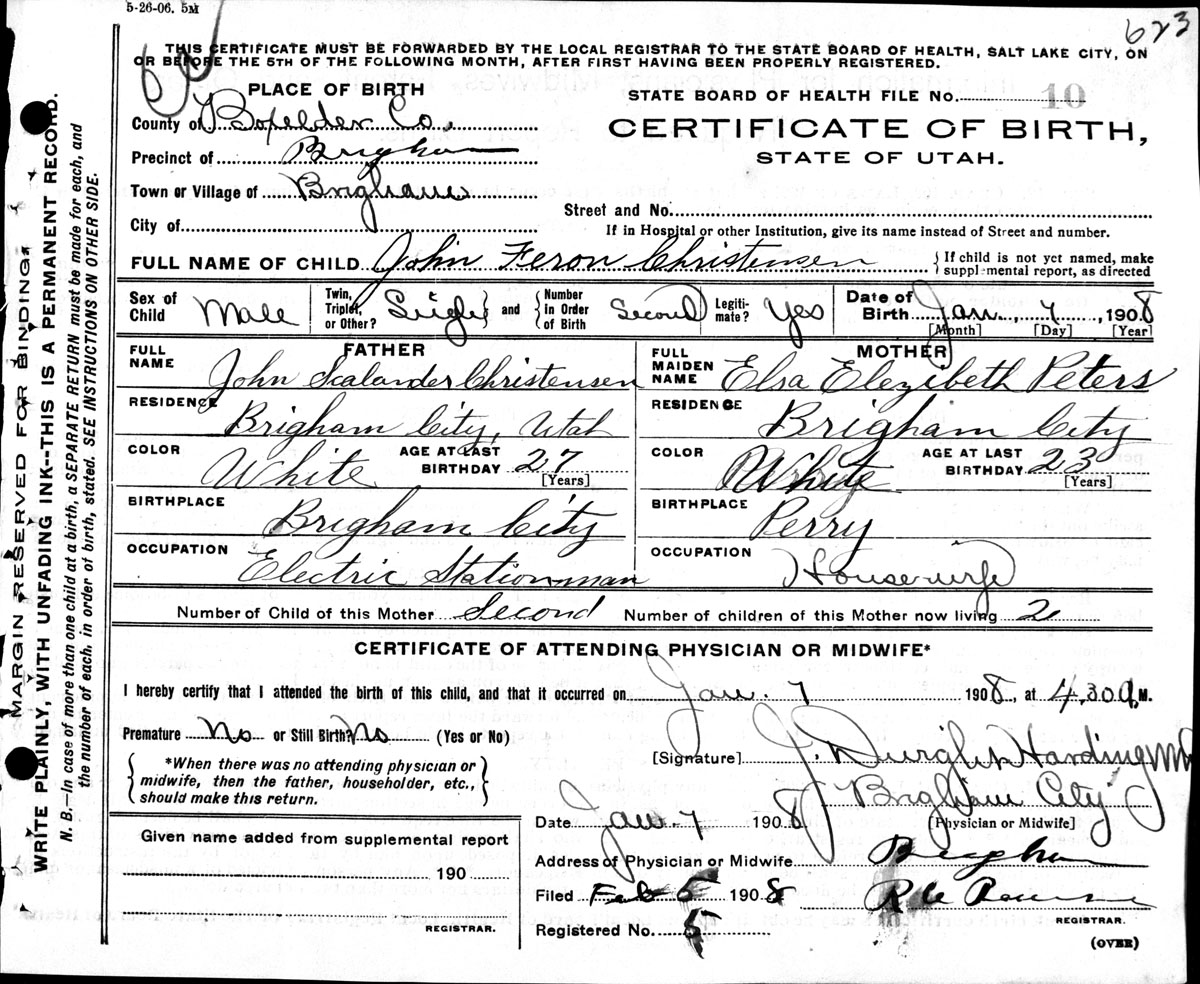 5-26-06. 5M
623
THIS CERTIFICATE MUST BE FORWARDED BY THE LOCAL REGISTRAR TO THE STATE BOARD OF HEALTH, SALT LAKE CITY, ON
OR BEFORE THE 5TH OF THE FOLLOWING MONTH, AFTER FIRST HAVING BEEN PROPERLY REGISTERED.
PLACE OF BIRTH
STATE BOARD OF HEALTH FILE No. 10
County of Boxelder Co.
CERTIFICATE OF BIRTH,
Precinct of Brigham
STATE OF UTAH.
Town or Village of Brigham
Street and No.
City of
If in Hospital or other Institution, give its name instead of Street and number.
FULL NAME OF CHILD John Feron Christensen
{If child is not yet named, make
supplemental report, as directed
Sex of Child Male
Twin, Triplet, or Other? Single } and { Number in Order of Birth Second
Legiti-mate? Yes
Date of Birth Jan. 7, 1908
[Month] [Day] [Year]
FATHER
MOTHER
FULL NAME John Scalander Christensen
FULL MAIDEN NAME Elsa Elezibeth Peters
RESIDENCE Brigham City, Utah
RESIDENCE Brigham City
COLOR White AGE AT LAST BIRTHDAY 27 [Years]
COLOR White AGE AT LAST BIRTHDAY 23 [Years]
BIRTHPLACE Brigham City
BIRTHPLACE Perry
OCCUPATION Electric Station-man
OCCUPATION Housewife
Number of Child of this Mother Second Number of children of this Mother now living 2
CERTIFICATE OF ATTENDING PHYSICIAN OR MIDWIFE*
I hereby certify that I attended the birth of this child, and that it occurred on Jan. 7 1908, at 4.30 a M.
Premature No or Still Birth? No (Yes or No)
[Signature] J. Harding MD
Brigham City
[Physician or Midwife]
*When there was no attending physician or
midwife, then the father, householder, etc.,
should make this return.
Date Jan. 7 1908
Given name added from supplemental report
190
REGISTRAR.
Address of Physician or Midwife Brigham
Filed Feb 5 1908
REGISTRAR.
Registered No. 5
(OVER)
MARGIN RESERVED FOR BINDING.
WRITE PLAINLY, WITH UNFADING INK--THIS IS A PERMANENT RECORD.
N. B.—In case of more than one child at a birth, a SEPARATE RETURN must be made for each, and
the number of each, in order of birth, stated. SEE INSTRUCTIONS ON OTHER SIDE.